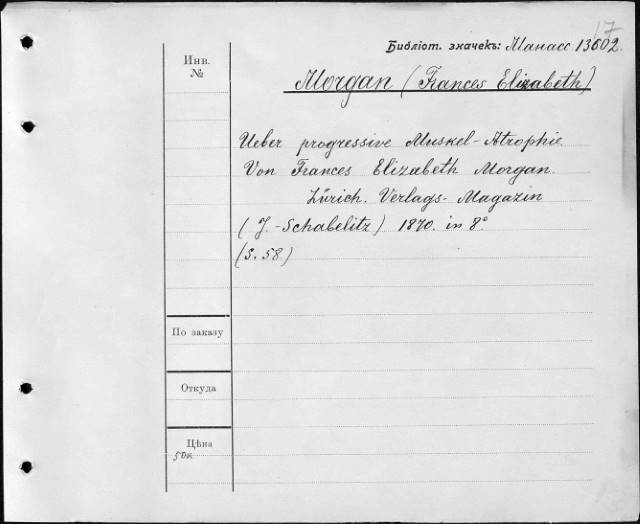 17
Библіот. значекъ: Манасс. 13602.
Инв.
№
Morgan (Frances Elizabeth)
Ueber progressive Muskel-Atrophie
Von Frances Elizabeth Morgan.
Zürich. Verlags-Magazin
(J.-Schabelitz) 1870. in 8°
(S. 58)
По заказу
Откуда
Цѣна
50к